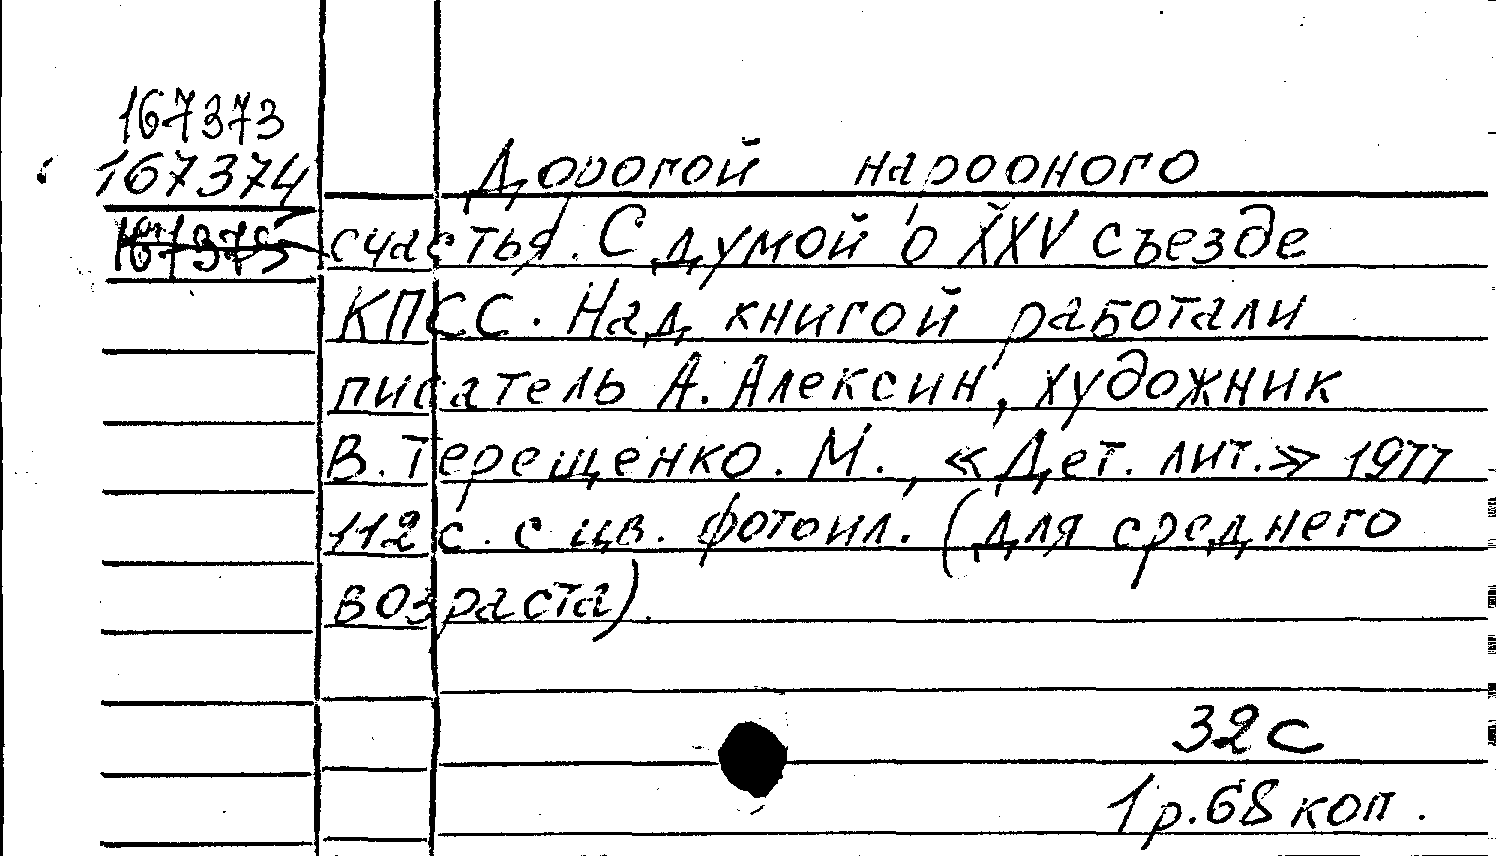 167373
167374
Дорогой народного
счастья. С думой о XXV съезде
КПСС. Над книгой работали
писатель А. Алексин, художник
В. Терещенко. М., «Дет. лит.» 1977
112 с. с цв. фотоил. (для среднего
возраста).
32с
1р.68 коп.